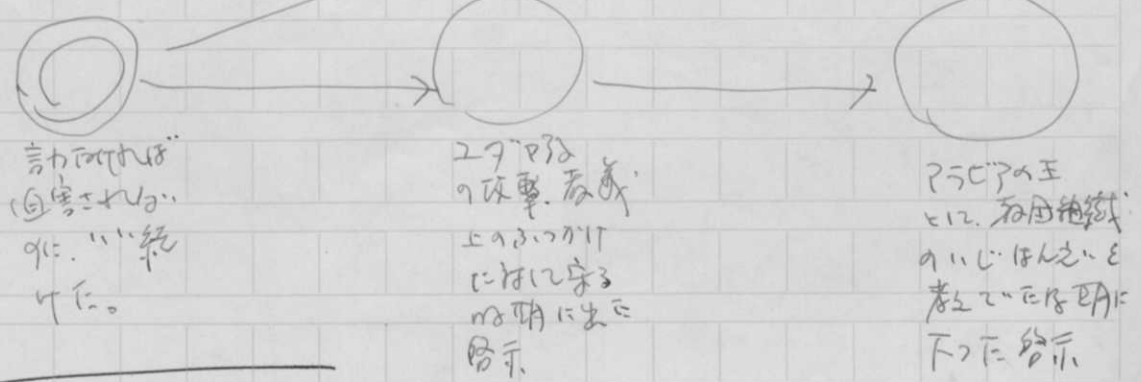 言わなければ
迫害されない
のに、いい続
けた。
ユダヤ教
の攻撃、教義
上のふっかけ
に対して守る
時期に出た
啓示
アラビアの王
として、教団組織
のいじ はんえいを
考えていた時期に
下った啓示